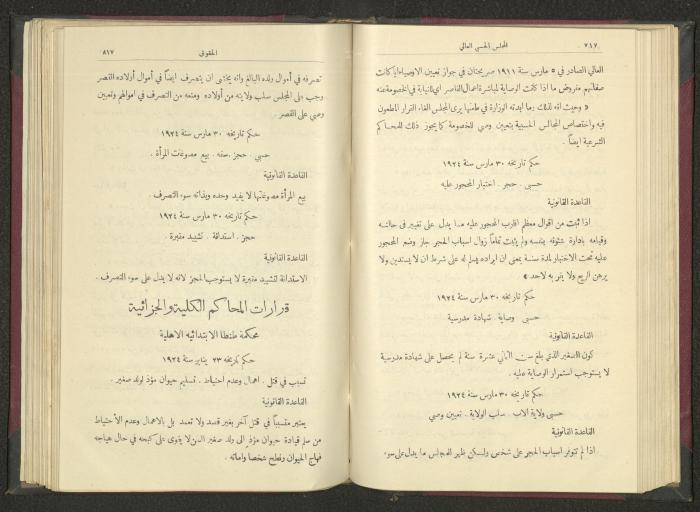 ٧١٧
المجلس الحسبي العالي
العالي الصادر في ٥ مارس سنة ١٩١١ صريحتان في جواز تعيين الاوصياء اياً كانت
صفاتهم مفروض ما اذا كانت الوصاية لمباشرة اعمال القاصر اي للنيابة في الخصومة عنه
« وحيث انه لذلك ولما ابدته الوزارة في طعنها يرى المجلس الغاء القرار المطعون
فيه واختصاص المجالس الحسبية بتعيين وصي للخصومة كما يجوز ذلك للمحاكم
الشرعية ايضاً .
حكم تاريخه ٣٠ مارس سنة ١٩٢٤
حسبي . حجر . اختبار المحجور عليه
القاعدة القانونية
اذا ثبت من اقوال معظم اقارب المحجور عليه ما يدل على تغيير في حالته
وقيامه بادارة شئونه بنفسه ولم يثبت تماماً زوال اسباب الحجر جاز وضع المحجور
عليه تحت الاختبار لمدة سنة بمعنى ان ايراده يسلم له على شرط ان لا يستدين ولا
يرهن الريع ولا يقر به لاحد »
حكم تاريخه ٣٠ مارس سنة ١٩٢٤
حسبي . وصاية . شهادة مدرسية
القاعدة القانونية
كون الصغير الذي بلغ سن الثاني عشرة سنة لم يحصل على شهادة مدرسية
لا يستوجب استمرار الوصاية عليه .
حكم تاريخه ٣٠ مارس سنة ١٩٢٤
حسبي ولاية الاب . سلب الولاية . تعيين وصي
القاعدة القانونية
اذا لم تتوفر اسباب الحجر على شخص ولكن ظهر للمجلس ما يدل على سوء
الحقوق
٨١٧
تصرفه في أموال ولده البالغ وانه يخشى ان يتصرف ايضاً في أموال أولاده القصر
وجب على المجلس سلب ولايته من أولاده ومنعه من التصرف في اموالهم وتعيين
وصي على القصر .
حكم تاريخه ٣٠ مارس سنة ١٩٢٤
حسبي . حجز . سفه . بيع مصوغات المرأة .
القاعدة القانونية
بيع المرأة مصوغاتها لا يفيد وحده وبذاته سوء التصرف .
حكم تاريخه ٣٠ مارس سنة ١٩٢٤
حجز . استدانة . تشييد مقبرة
القاعدة القانونية
الاستدانة لتشييد مقبرة لا يستوجب الحجز لانه لا يدل على سوء التصرف .
قرارات المحاكم الكلية والجزائية
محكمة طنطا الابتدائيه الاهلية
حكم تاريخه ٢٣ يناير سنة ١٩٢٤
تسبب في قتل . اهمال وعدم احتياط . تسليم حيوان مؤذ لولد صغير .
القاعدة القانونية
يعتبر متسبباً في قتل آخر بغير قصد ولا تعمد بل بالاهمال وعدم الأحتياط
من سلم قيادة حيوان مؤذ الى ولد صغير السن لا يقوى على كبحه في حال هياجه
فهاج الحيوان ونطح شخصا واماته .